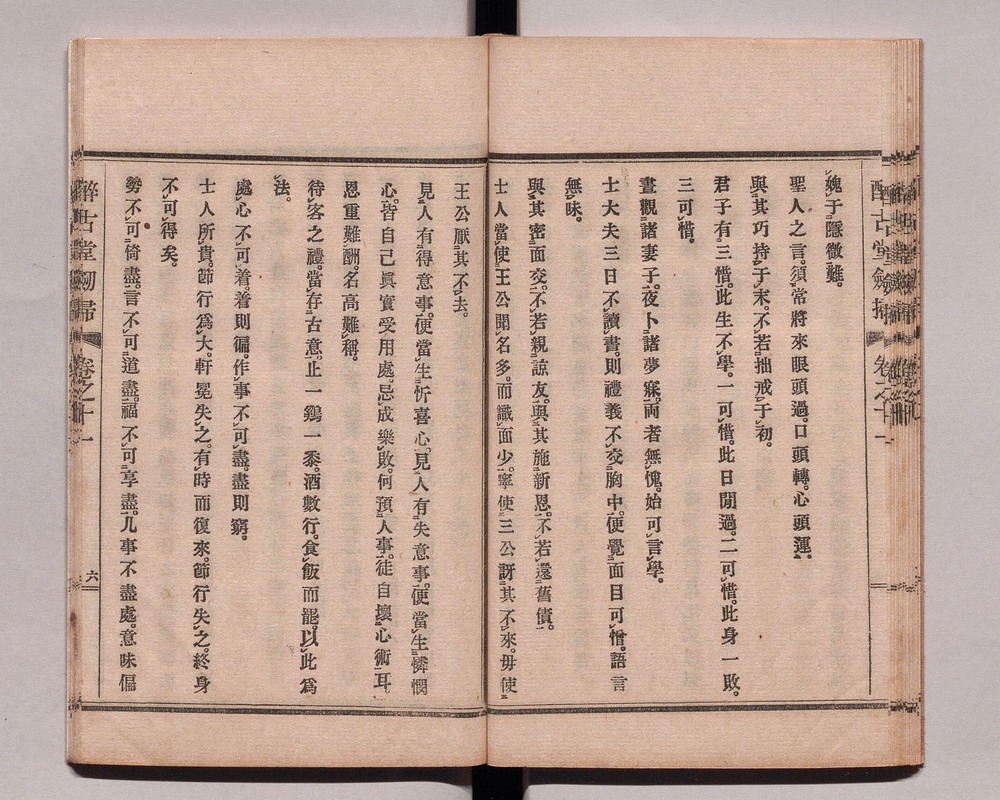 媿于隱微難。
聖人之言。須常將來眼頭過。口頭轉。心頭運。
與其巧持于末。不若拙戒于初。
君子有三惜。此生不學。一可惜。此日閒過。二可惜。此身一敗。
三可惜。
晝觀諸妻子。夜卜諸夢寐。兩者無愧。始可言學。
士大夫三日不讀書。則禮義不交胸中。便覺面目可憎。語言
無味。
與其密面交。不若親諒友。與其施新恩。不若還舊債。
士人當使王公聞名多。而識面少。寧使三公訝其不來。毋使
王公厭其不去。
見人有得意事。便當生忻喜心。見人有失意事。便當生憐憫
心。皆自己眞實受用處。忌成樂敗。何預人事。徒自壞心術耳。
恩重難酬。名高難稱。
待客之禮。當存古意。止一鷄一黍。酒數行。食飯而罷。以此爲
法。
處心不可着。着則偏。作事不可盡。盡則窮。
士人所貴。節行爲大。軒冕失之。有時而復來。節行失之。終身
不可得矣。
勢不可倚盡。言不可道盡。福不可享盡。凡事不盡處。意味偏
醉古堂劒掃
卷之十一
六